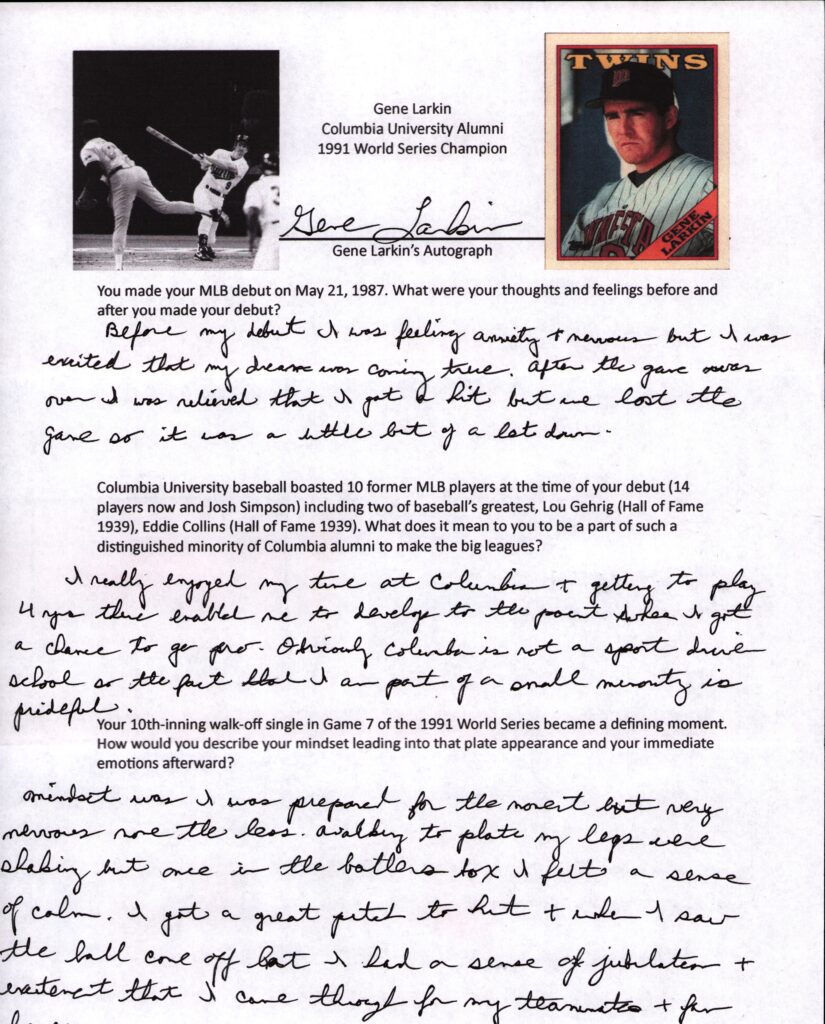 Gene Larkin
Columbia University Alumni
1991 World Series Champion
TWINS
GENE LARKIN
Gene Larkin
Gene Larkin's Autograph
You made your MLB debut on May 21, 1987. What were your thoughts and feelings before and
after you made your debut?
Before my debut I was feeling anxiety + nervous but I was
excited that my dream was coming true. After the game was
over I was relieved that I got a hit but we lost the
game so it was a little bit of a let down.
Columbia University baseball boasted 10 former MLB players at the time of your debut (14
players now and Josh Simpson) including two of baseball's greatest, Lou Gehrig (Hall of Fame
1939), Eddie Collins (Hall of Fame 1939). What does it mean to you to be a part of such a
distinguished minority of Columbia alumni to make the big leagues?
I really enjoyed my time at Columbia + getting to play
4 yrs there enabled me to develop to the point where I got
a chance to go pro. Obviously Columbia is not a sport drive
school so the fact that I am part of a small minority is
prideful.
Your 10th-inning walk-off single in Game 7 of the 1991 World Series became a defining moment.
How would you describe your mindset leading into that plate appearance and your immediate
emotions afterward?
mindset was I was prepared for the moment but very
nervous none the less. Walking to plate my legs were
shaking but once in the batters box I felt a sense
of calm. I got a great pitch to hit + when I saw
the ball come off bat I had a sense of jubilation +
excitement that I came through for my teammates + fan